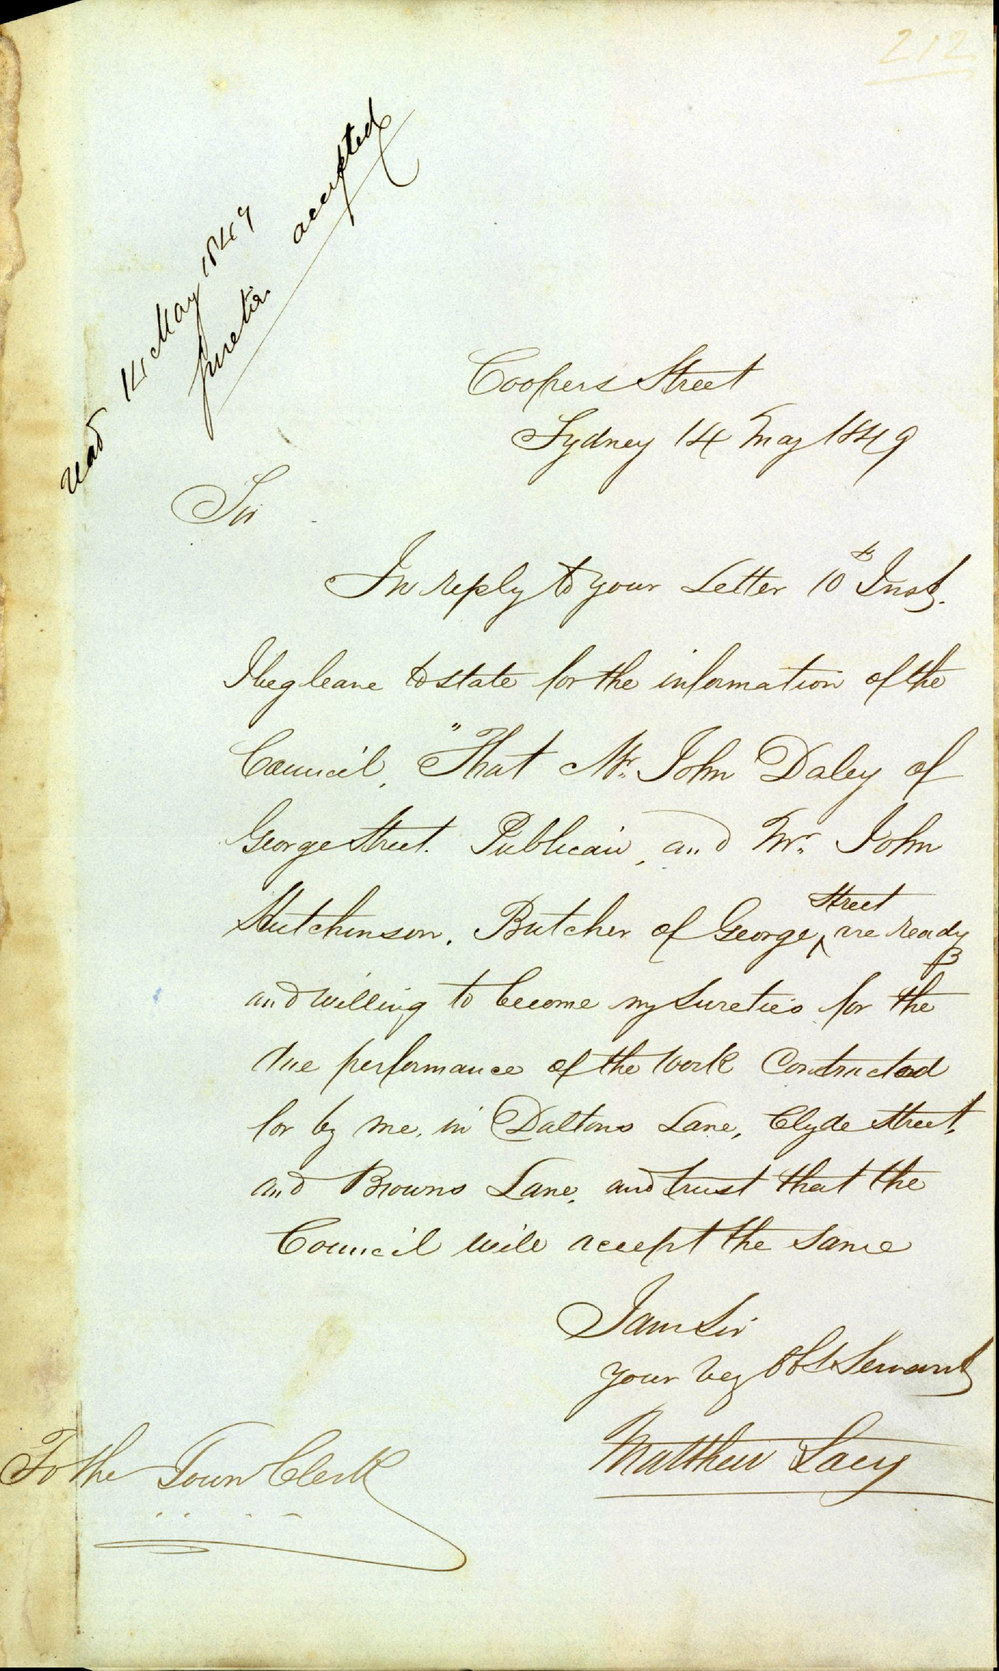 212
read 14 May 1849
sureties accepted
Coopers Street
Sydney 14 May 1849
Sir
In reply to your Letter 10th Inst.
I beg leave to state for the information of the
Council, "That Mr. John Daley of
George Street. Publican, and Mr. John
Hutchinson. Butcher of George Street are ready
and willing to become my Sureties for the
due performance of the Work Contracted
for by me, in Daltons Lane, Clyde Street,
and Browns Lane, and trust that the
Council will accept the same
I am Sir
your vey Obt Servant
Matthew Lacey
To the Town Clerk